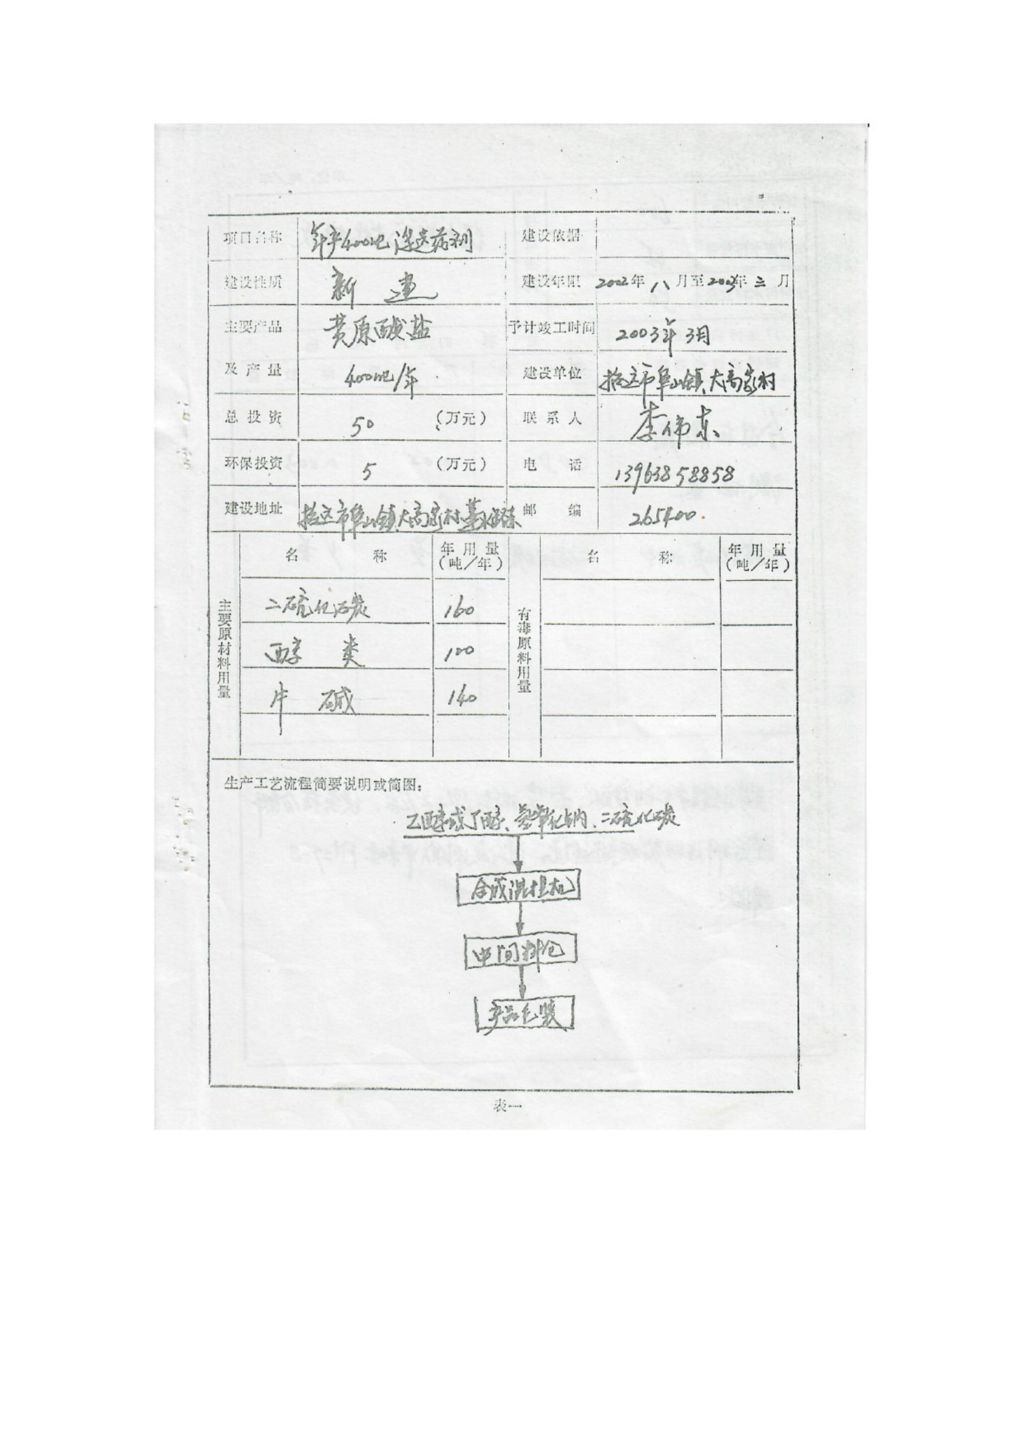 项目名称 年产400吨浮选药剂 建设依据
建设性质 新 建 建设年限 2002年八月至2003年三月
主要产品 黄原酸盐 予计竣工时间 2003年3月
及产量 400吨/年 建设单位 招远市阜山镇大高家村
总投资 50 (万元) 联系人 李伟东
环保投资 5 (万元) 电话 13963858858
建设地址 招远市阜山镇大高家村 邮编 265400.
主要原材料用量 名称 年用量(吨/年) 有毒原料用量 名称 年用量(吨/年)
二硫化碳 160
醇 类 100
片 碱 140
生产工艺流程简要说明或简图：
乙醇或丁醇、氢氧化钠、二硫化碳
合成混捏机
中间料仓
产品包装
表一